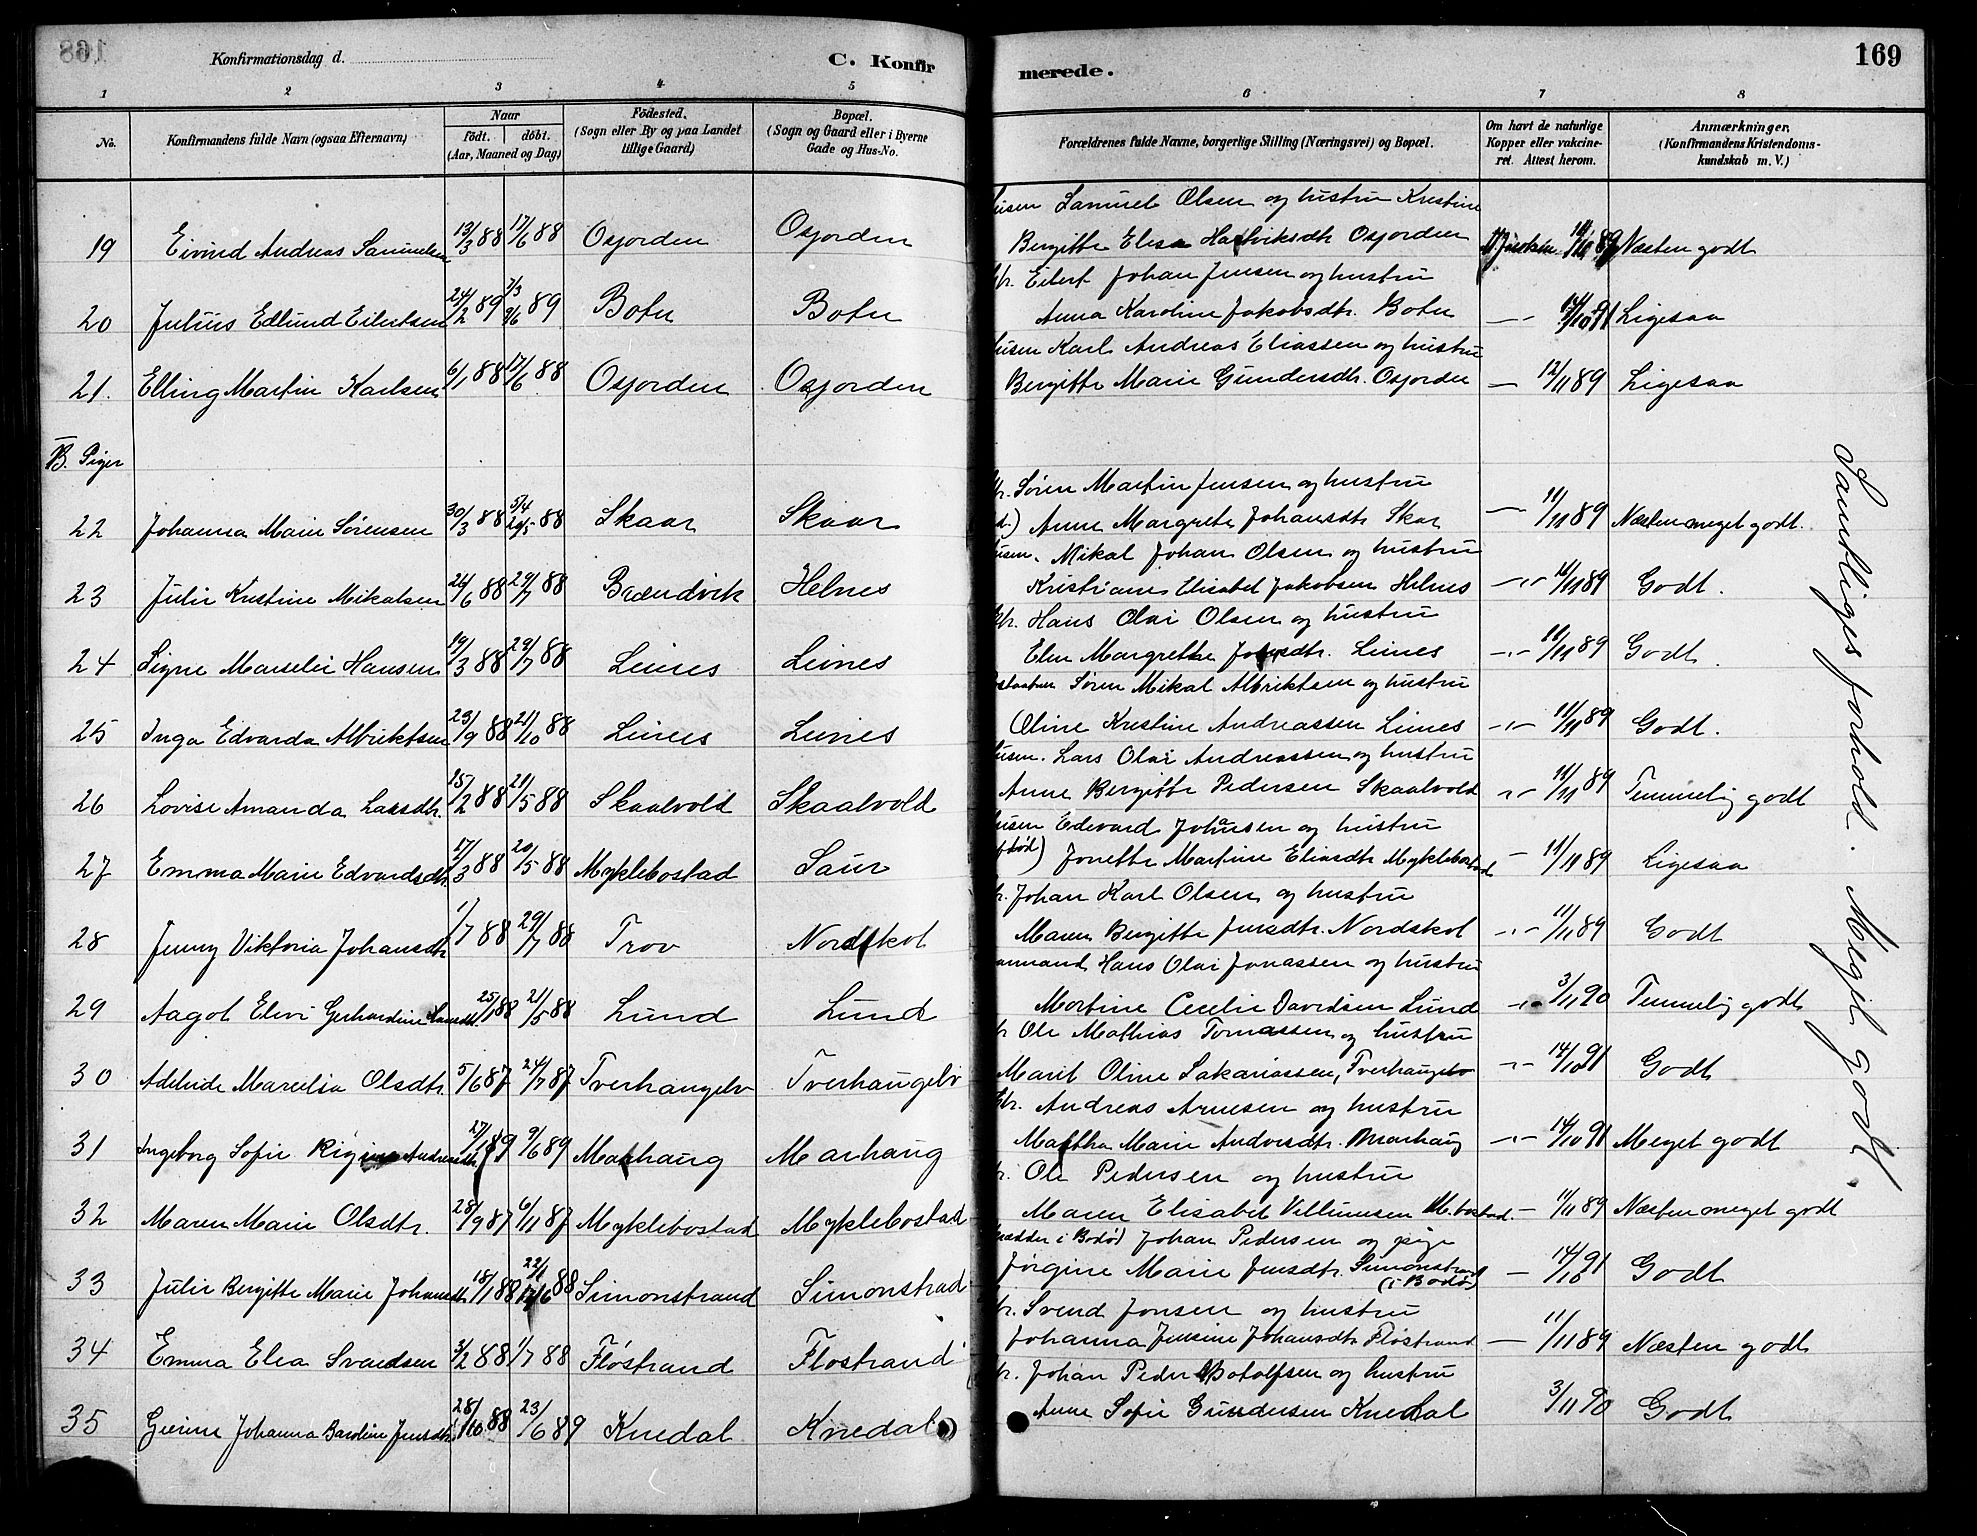 Konfirmationsdag d.
C. Konfir
merede.
169
1 2 3 4 5 6 7 8
No.
Konfirmandens fulde Navn (ogsaa Efternavn)
Naar
født. døbt.
(Aar, Maaned og Dag)
Fødested.
(Sogn eller By og paa Landet
tillige Gaard)
Bopæl.
(Sogn og Gaard eller i Byerne
Gade og Hus-No.
Forældrenes fulde Navne, borgerlige Stilling (Næringsvei) og Bopæl.
Om havt de naturlige
Kopper eller vakcine-
ret. Attest herom.
Anmærkninger.
(Konfirmandens Kristendoms-
kundskab m. V.)
Samuel Olsen og hustru Kristine
19 Eivind Andreas Samuelsen 13/3 88 17/6 88 Osjorden Osjorden Bergitte Elisa Hartviksdtr Osjorden 89 Næsten godt
Eilert Johan Jensen og hustru
20 Julius Edlund Eilertsen 24/2 89 9/6 89 Botn Botn Anna Karoline Jakobsdtr. Botn 14/10 91 Ligesaa
Karl Andreas Eliassen og hustru
21. Elling Martin Karlsen 6/1 88 17/6 88 Osjorden Osjorden Bergitte Marie Gundersdtr. Osjorden 12/11 89 Ligesaa
B. Piger
Søren Martin Jensen og hustru
22 Johanna Marie Sørensen 30/3 88 5/4 88 Skaar Skaar Anne Margrete Johansdtr Skar 11/11 89 Næsten meget godt.
Mikal Johan Olsen og hustru
23 Julie Kristine Mikalsen 24/6 88 29/7 88 Brændvik Helnes Elisabet Jakobsen Helnes 11/11 89 Godt.
Hans Olai Olsen og hustru
24 Signe Marselie Hansen 19/3 88 29/7 88 Leines Leines Elen Margrethe Leines 11/11 89 Godt.
Søren Mikal Albriktsen og hustru
25 Inga Edvarda Albriktsen 23/9 88 21/10 88 Leines Leines Oline Kristine Andreassen Leines 11/11 89 Godt.
Lars Olai Andreassen og hustru
26 Lovise Amanda Larsdtr. 25/2 88 21/5 88 Skaalvold Skaalvold Anne Bergitte Pedersen Skaalvold 11/11 89 Temmelig godt
Edevard Johansen og hustru
27 Emma Marie Edvardsdtr 17/3 88 20/5 88 Myklebostad Saur død) Jonette Martine Eliasdtr Myklebostad 11/11 89 Ligesaa
Johan Karl Olsen og hustru
28 Jenny Viktoria Johansdtr 1/7 88 29/7 88 Trov Nordskot Maren Bergitte Jensdtr. Nordskot 11/11 89 Godt
Hans Olai Jonassen og hustru
29 Aagot Elevi Gerhardine Hansdt. 25/1 88 21/5 88 Lund Lund Martine Cecelie Davidsen Lund 3/11 90 Temmelig godt
Ole Mathias Tomassen og hustru
30 Adelaide Marselia Olsdtr. 5/6 87 24/7 87 Tverhaugelv Tverhaugelv Marit Oline Sakariassen, Tverhaugelv 14/10 91 Godt
Andreas Arnesen og hustru
31 Ingeborg Sofie Andreasdtr 27/1 89 9/6 89 Marhaug Marhaug Martha Marie Andersdtr. Marhaug 14/10 91 Meget godt
Ole Pedersen og hustru
32 Maren Marie Olsdtr. 28/9 87 6/11 87 Myklebostad Myklebostad Maren Elisabet Villumsen M.bostad. 11/11 89 Næsten meget godt
i Bodø) Johan Pedersen og pige
33 Julie Bergitte Marie Johansdtr 18/1 88 88 Simonstrand Simonstrad Jørgine Marie Jensdtr. Simonstrand (i Bodø) 14/10 91 Godt
Svend Jonsen og hustru
34 Emma Elea Svendsen 3/2 88 1/7 88 Fløstrand Fløstrand Johanna Jensine Johansdtr Fløstrand 11/11 89 Næsten godt
Johan Peder Botolfsen og hustru
35 Johanna 28/10 88 23/6 89 Knedal Knedal Anne Sofie Gundersen Knedal 3/11 90 Godt
Samtliges forhold. Meget godt.